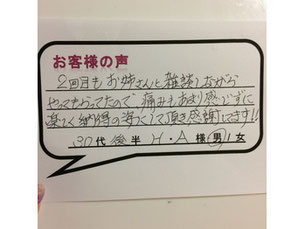 お客様の声
2回目もお姉さんと雑談しながら
やってもらってたので痛みもあまり感じずに
楽しく納得の導くして頂き感謝してます!!
30代後半 H・A様 男・女